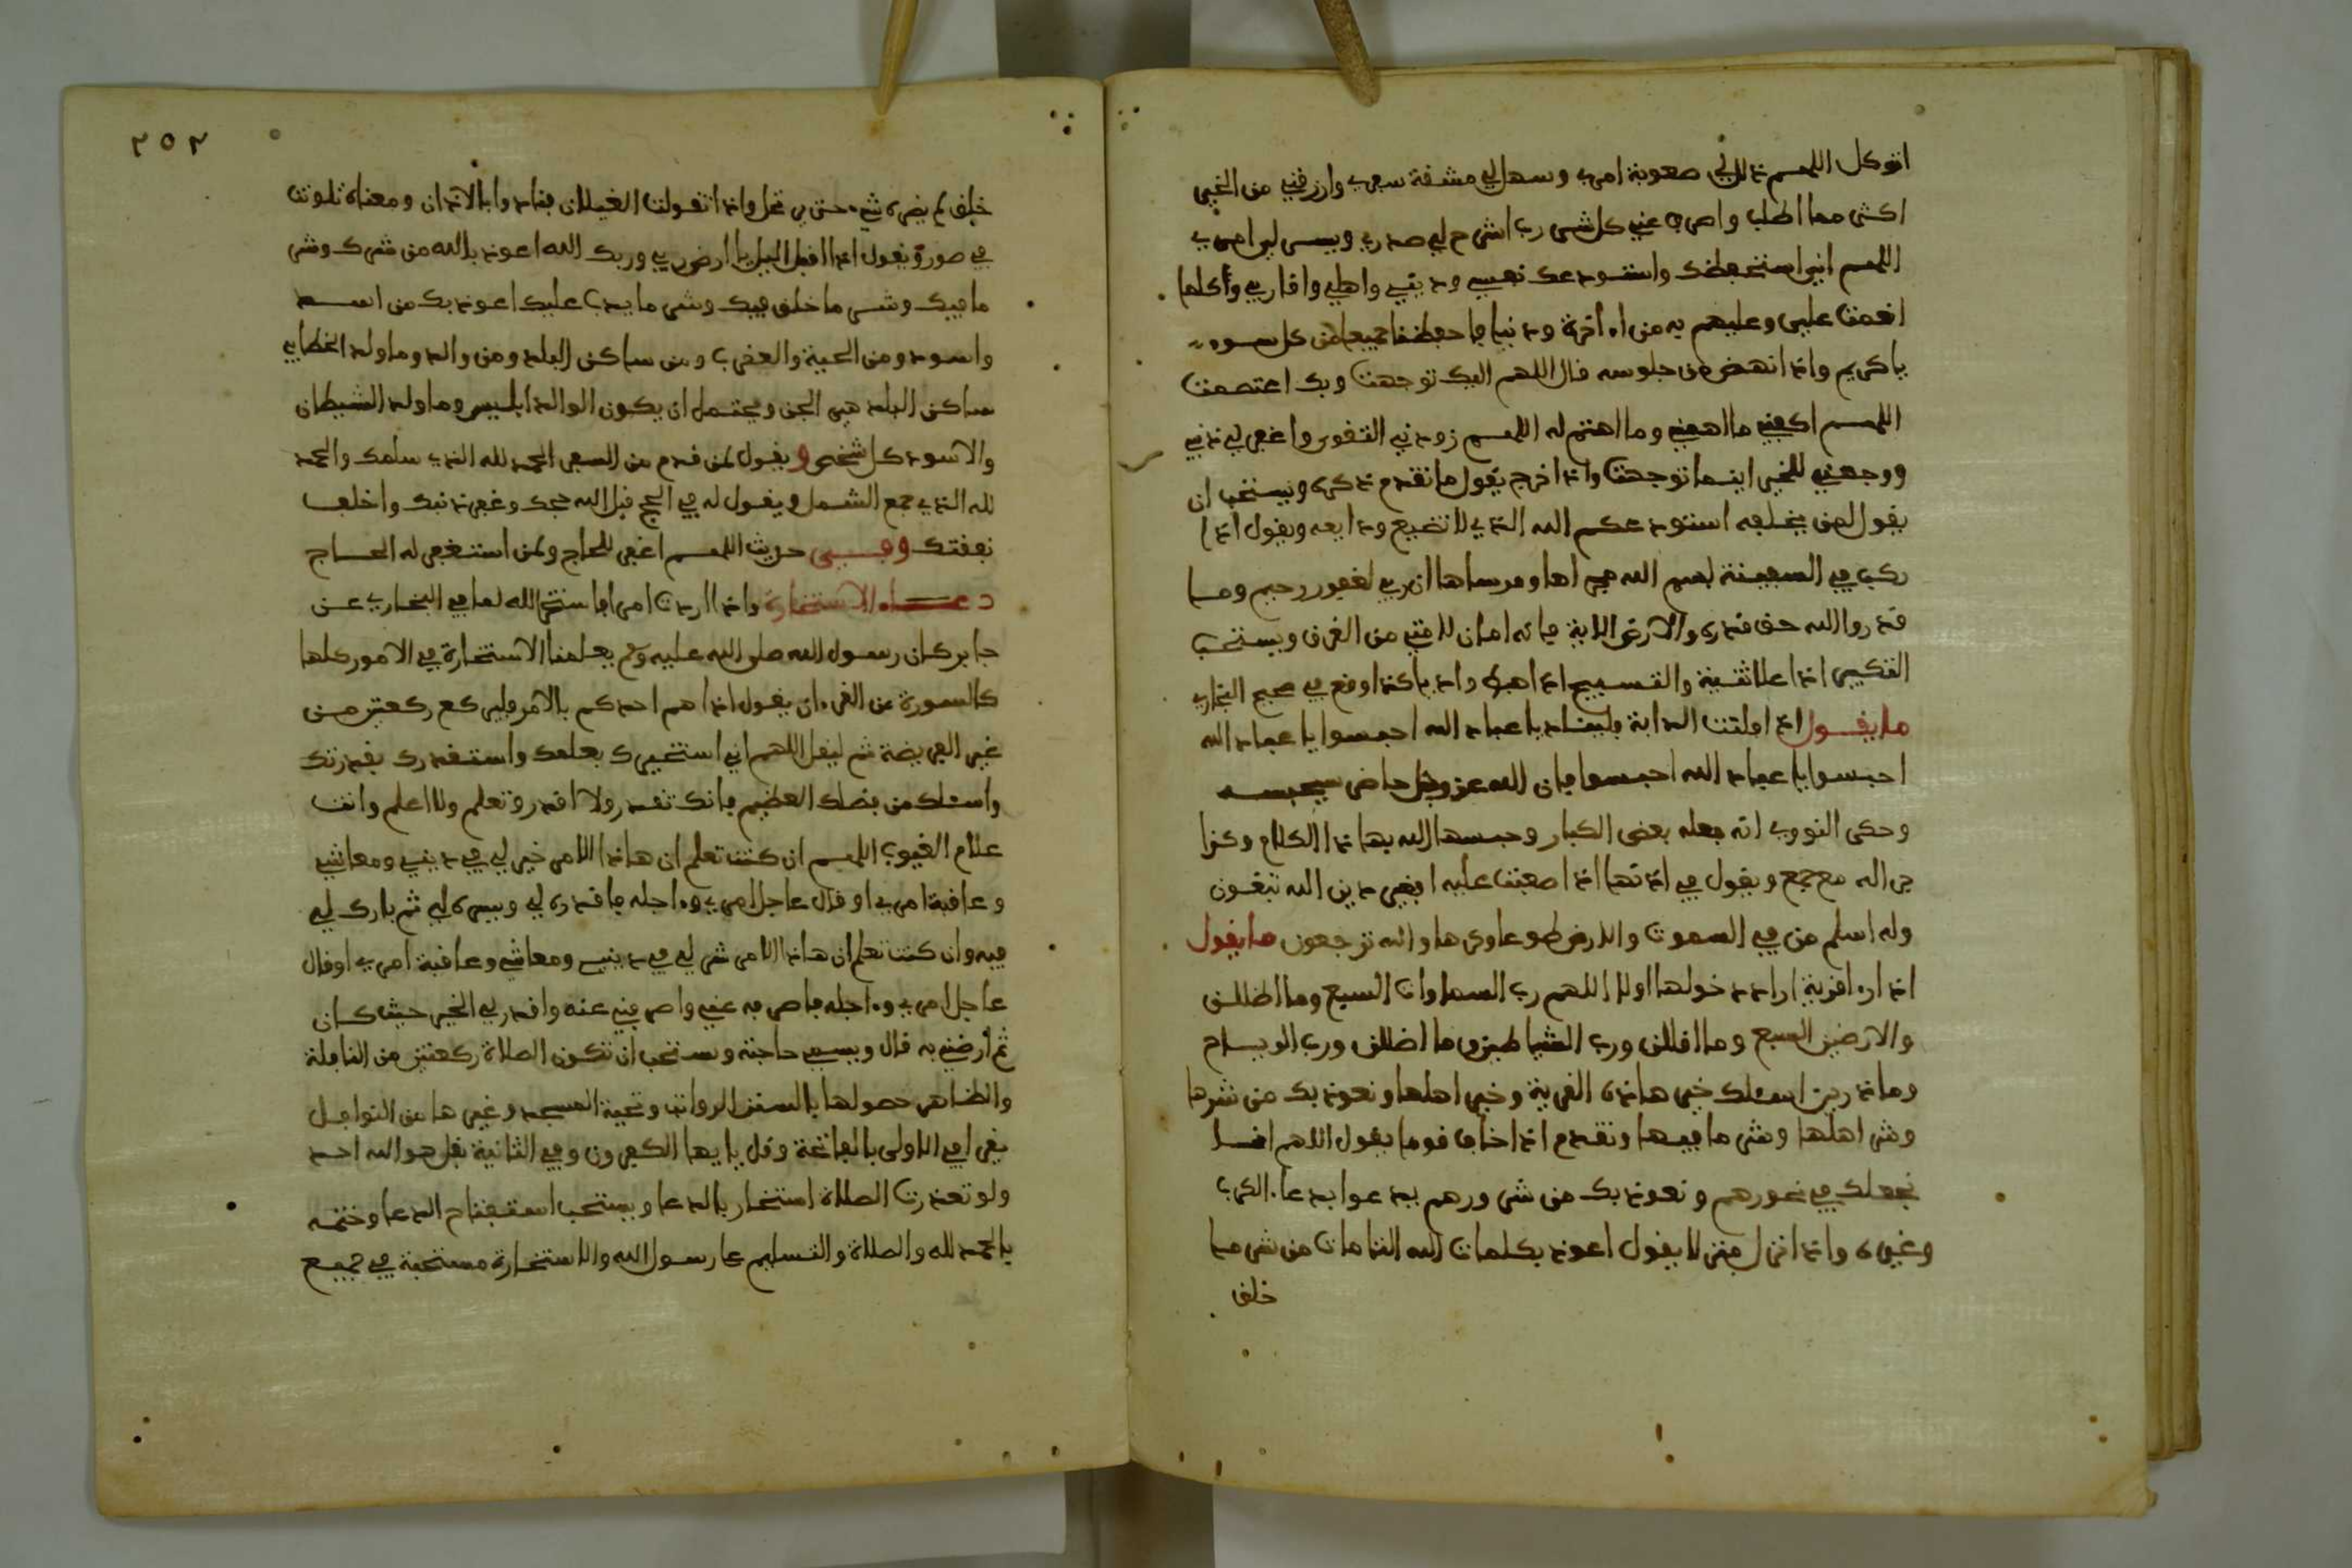 اتوكل اللهم ذلل لي صعوبة امري وسهل لي مشقة سفري وارزقني من الخير
اكثر مما اطلب واصرف عني كل شر رب اشرح لي صدري ويسر لي امري
اللهم اني استحفظك واستودعك نفسي وديني واهلي واقاربي وكلما
انعمت علي وعليهم به من اخرة ودنيا فاحفظنا جميعا من كل سوء
يا كريم واذا نهض من جلوسه قال اللهم اليك توجهت وبك اعتصمت
اللهم اكفني ما اهمني وما اهتم له اللهم زودني التقوى واغفر لي ذنبي
ووجهني للخير اينما توجهت واذا خرج يقول ما تقدم ذكره ويستحب ان
يقول لمن يخلفه استودعكم الله الذي لا تضيع ودايعه ويقول اذا
ركب في السفينة بسم الله مجراها ومرساها ان ربي لغفور رحيم وما
قدروا الله حق قدره والارض الاية فانه امان لامته من الغرق ويستحب
التكبير اذا علا ثنية والتسبيح اذا هبط واديا كذا وقع في صحيح البخاري
ما يقول اذا افلتت الدابة فليناد يا عباد الله احبسوا يا عباد الله
احبسوا يا عباد الله احبسوا فان لله عز وجل حاضر سيحبسه
وحكى النووي انه فعله بعض الكبار وحبسها الله بهاذا الكلام وكذا
جرا له مع جمع ويقول في اذنها اذا صعبت عليه افغير دين الله تبغون
وله اسلم من في السموت والارض طوعا وكرها واليه ترجعون ما يقول
اذا را قرية اراد دخولها اولا اللهم رب السماوات السبع وما اظللن
والارضين السبع وما اقللن ورب الشياطين وما اضللن ورب الرياح
وما ذرين اسئلك خير هاذه القرية وخير اهلها ونعوذ بك من شرها
وشر اهلها وشر ما فيها وتقدم اذا خاف قوما يقول اللهم انا
نجعلك في نحورهم ونعوذ بك من شرورهم يدعوا بدعاء الكرب
وغيره واذا نزل منزلا يقول اعوذ بكلمات الله التامات من شر ما
خلق
٢٥٢
خلق لم يضره شيء حتى يرتحل واذا تغولت الغيلان فناد وا بالاذان ومعناه تلونت
في صورة ويقول اذا اقبل الليل يا ارض ربي وربك الله اعوذ بالله من شرك وشر
ما فيك وشر ما خلق فيك وشر ما يدب عليك اعوذ بك من اسد
واسود ومن الحية والعقرب ومن ساكن البلد ومن والد وما ولد الخطابي
ساكن البلد هي الجن ويحتمل ان يكون الوالد ابليس وما ولد الشيطان
والاسود كل شخص ويقول لمن قدم من السفر الحمد لله الذي سلمك والحمد
لله الذي جمع الشمل ويقول له في الحج قبل الله حجك وغفر ذنبك واخلف
نفقتك وفي حديث اللهم اغفر للحاج ولمن استغفر له الحاج
دعاء الاستخارة واذا اردت امرا فاستخر الله لما في البخاري عن
جابر كان رسول الله صلى الله عليه وسلم يعلمنا الاستخارة في الامور كلها
كالسورة من القرءان يقول اذا هم احدكم بالامر فليركع ركعتين من
غير الفريضة ثم ليقل اللهم اني استخيرك بعلمك واستقدرك بقدرتك
واسئلك من فضلك العظيم فانك تقدر ولا اقدر وتعلم ولا اعلم وانت
علام الغيوب اللهم ان كنت تعلم ان هاذا الامر خير لي في ديني ومعاشي
وعاقبة امري او قال عاجل امري وءاجله فاقدره لي ويسره لي ثم بارك لي
فيه وان كنت تعلم ان هاذا الامر شر لي في ديني ومعاشي وعاقبة امري او قال
عاجل امري وءاجله فاصرفه عني واصرفني عنه واقدر لي الخير حيث كان
ثم ارضني به قال ويسمي حاجته ويستحب ان تكون الصلاة ركعتين من النافلة
والظاهر حصولها بالسنن الرواتب وتحية المسجد وغيرها من النوافل
يقرا في الاولى بالفاتحة وقل يايها الكفرون وفي الثانية بقل هو الله احد
ولو تعذرت الصلاة استخار بالدعا ويستحب استفتاح الدعا وختمه
بالحمد لله والصلاة والتسليم على رسول الله والاستخارة مستحبة في جميع